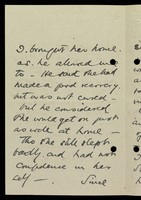 I brought her home
as he allowed me
to - He said she had
made a good recovery
but was not cured -
but he considered
she would get on just
as well at home -
Tho she still slept
badly, and had not
confidence in her
self - Since